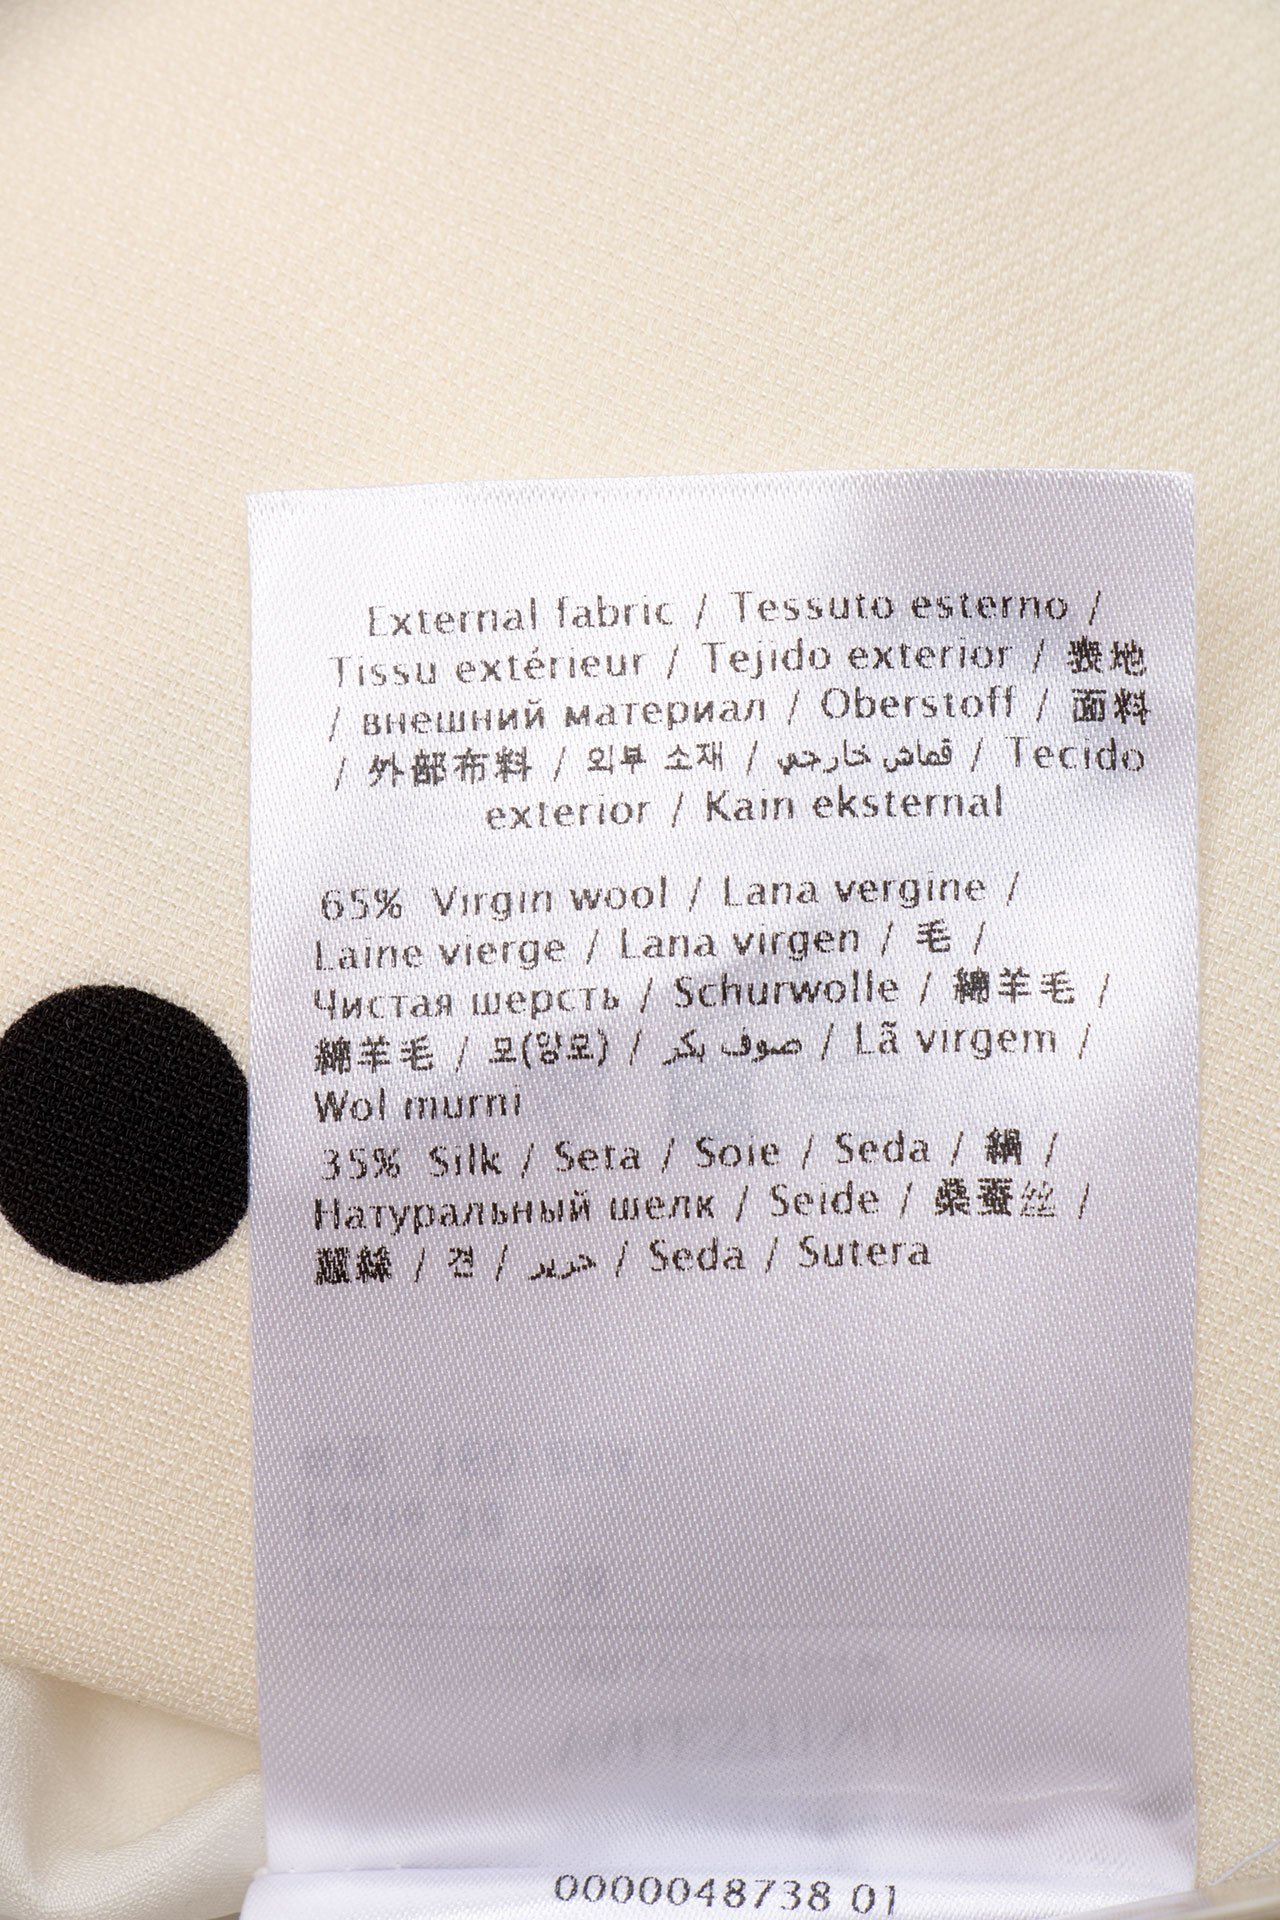 External fabric / Tessuto esterno /
Tissu extérieur / Tejido exterior / 表地
/ внешний материал / Oberstoff / 面料
/ 外部布料 / 외부 소재 / قماش خارجي / Tecido
exterior / Kain eksternal
65% Virgin wool / Lana vergine /
Laine vierge / Lana virgen / 毛 /
Чистая шерсть / Schurwolle / 綿羊毛 /
綿羊毛 / 모(양모) / صوف بكر / Lã virgem /
Wol murni
35% Silk / Seta / Soie / Seda / 絹 /
Натуральный шелк / Seide / 桑蚕丝 /
蠶絲 / 견 / حرير / Seda / Sutera
0000048738 01